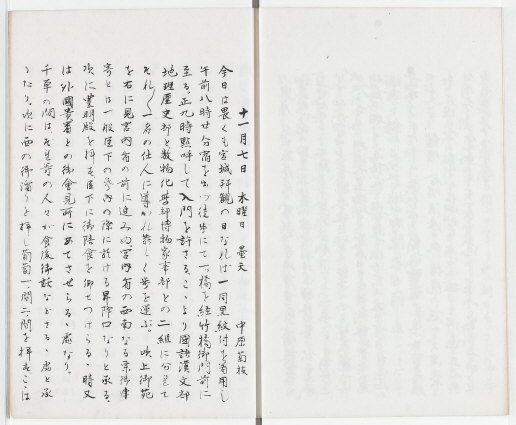 十一月七日　水曜日　曇天
中原菊枝
今日は畏くも宮城拝観の日なれば一同黒紋付を着用し
午前八時廿分宿を出づ徒歩にて一橋を経竹橋御門前に
至る、正九時点呼して入門を許さる、こゝより国語漢文部
地理歴史部と数物化学部博物家事部との二組に分れて
それ／＼一名の仕人に導かれ恭しく歩を運ぶ。吹上御苑
を右に見宮内省の前に進みぬ、宮内省の西南なる
寄とは一般臣下の参内の際に於ける昇降口なりと承る、
次に豊明殿を拝す臣下に御陪食を御せつけらるゝ時又
は外国貴賓との御会見所にあてさせらるゝ處なり。
千草の間は
人々が食後御談などさるゝ處と承
うたり。次に西の御溜りを拝し葡萄一間二間を拝す、こは